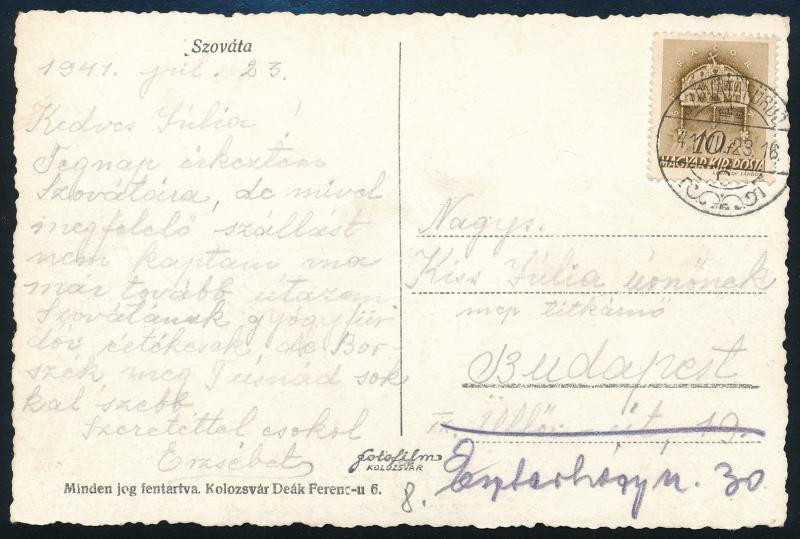 Szováta
1941. júl. 23.
Kedves Júlia!
Tegnap érkeztem
Szovátára, de mivel
megfelelő szállást
nem kaptam ma
már tovább utazom
Szovátának gyógyfür-
dői értékesek de Bor-
szék meg Tusnád sok
kal szebb
Szeretettel csókol
Erzsébet
fotofilm
KOLOZSVÁR
Minden jog fentartva. Kolozsvár Deák Ferenc-u 6.
10
MAGYAR KIR. POSTA
41 23 16
Nagys.
Kiss Júlia úrnőnek
titkárnő
Budapest
Üllői út, 19.
8. Eszterházy u. 30